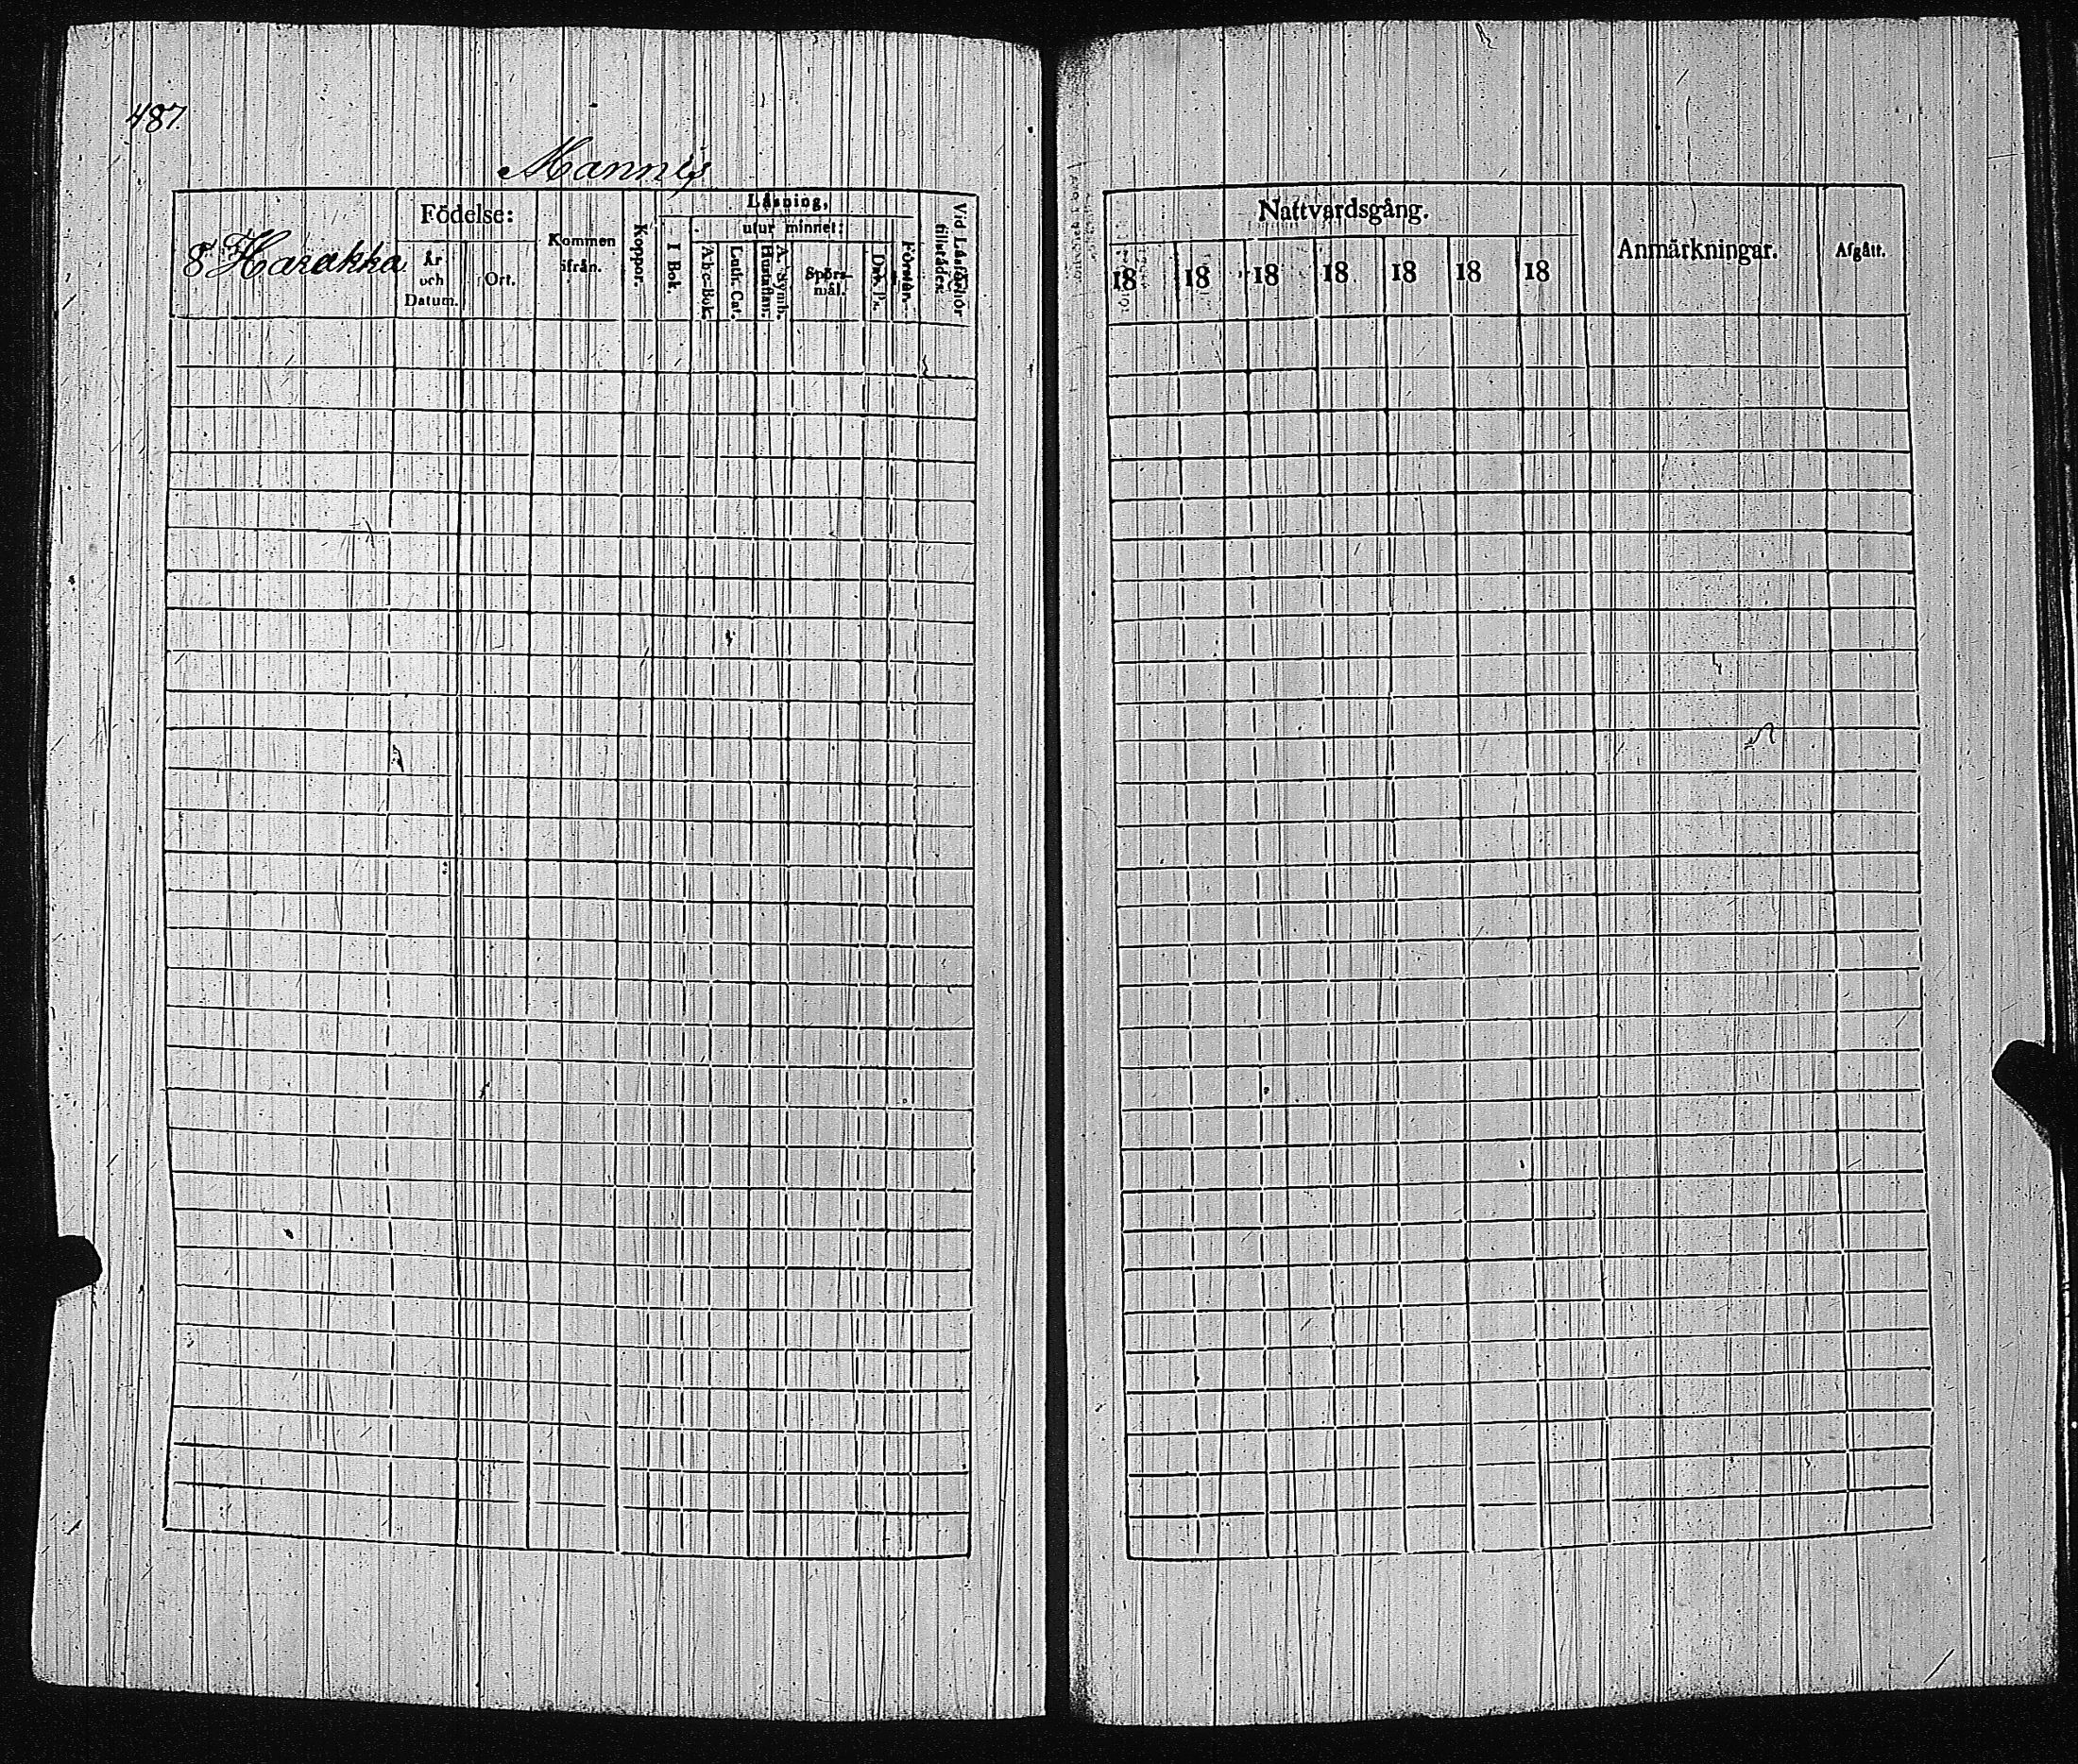 487.
Mannis
8 Harakka
Födelse:
År och Datum.
Ort.
Kommen ifrån.
Koppor.
Läsning,
I Bok.
utur minnet:
Abc-Bok.
Luth. Cat.
Hustaflan.
A. Symb.
Spörs-
mål.
Dav. Ps.
Förstår.
Vid Läsförhör tilstädes.
Nattvardsgång.
18 18 18 18 18 18 18
Anmärkningar.
Afgått.